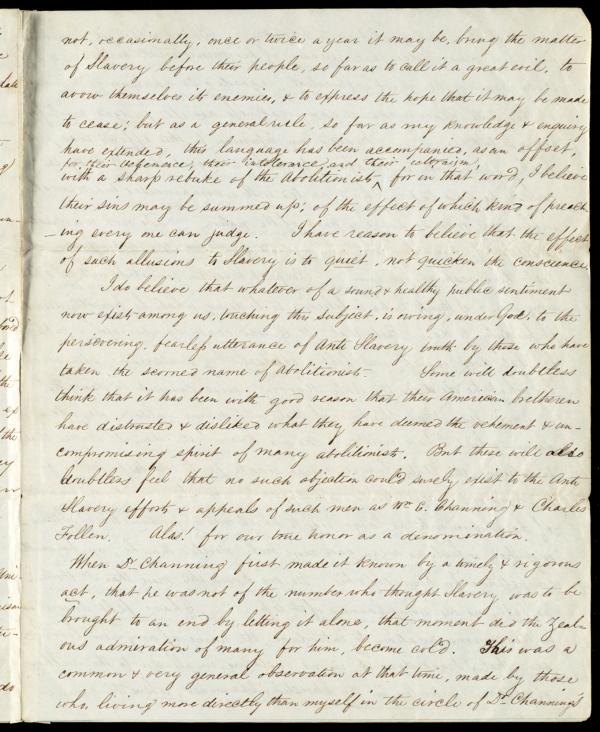 not, occasionally, once or twice a year it may be, bring the matter
of Slavery before their people, so far as to call it a great evil, to
avow themselves its enemies, & to express the hope that it may be made
to cease; but as a general rule, so far as my knowledge & enquiry
have extended, this language has been accompanied, as an offset,
for their defiance, their intolerance, and their
with a sharp rebuke of the Abolitionists ^ for in that word, I believe
their sins may be summed up; of the effect of which kind of preach
-ing every one can judge. I have reason to believe that the effect
of such allusions to Slavery is to quiet, not quicken the conscience.
I do believe that whatever of a sound & healthy public sentiment
now exists among us, touching this subject, is owing, under God, to the
persevering, fearless utterance of Anti Slavery truth by those who have
taken the scorned name of Abolitionist- Some will doubtless
think that it has been with good reason that their American brethren
have distrusted & disliked what they have deemed the vehement & un-
compromising spirit of many abolitionists. But these will also
doubtless feel that no such objection could surely exist to the Anti
Slavery efforts & appeals of such men as Wm E. Channing & Charles
Follen. Alas! for our true honor as a denomination.
When Dr Channing first made it known by a timely & rigorous
act, that he was not of the number who thought Slavery was to be
brought to an end by letting it alone, that moment did the zeal-
ous admiration of many for him, become cold. This was a
common & very general observation at that time, made by those
who, living more directly than myself in the circle of Dr Channing's